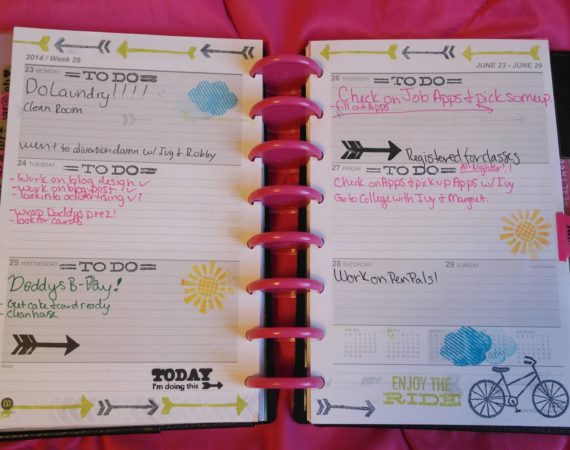 2014 / Week 26
23 MONDAY
TO DO
Do Laundry!!!!
Clean Room
went to diversion damn w/ Ivy & Robby
24 TUESDAY
TO DO
- Work on blog design ✓
- work on blog post ✓
- look into advertising ✓!
- wrap Daddys prez!
- look for cards
25 WEDNESDAY
TO DO
Daddys B-Day!
- Get cake & card ready
- clean hase
NOTES
TODAY
I'm doing this
JUNE 23 - JUNE 29
26 THURSDAY
TO DO
Check on Job Apps & pick some up.
- fill out Apps
Registered for classes
27 FRIDAY
TO DO
All-Nighter!!
Check on Apps & pick up Apps w/ Ivy
Go to College with Ivy & Margret.
28 SATURDAY
29 SUNDAY
Work on Pen Pals!
ENJOY THE
RIDE